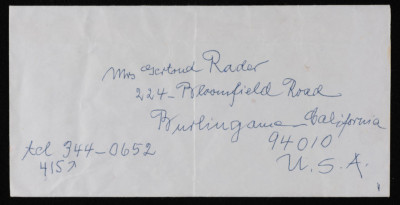 Mrs Gertrud Rader
224 - Bloomfield Road
Burlingame - California
94010
U. S. A.
tel 344-0652
415